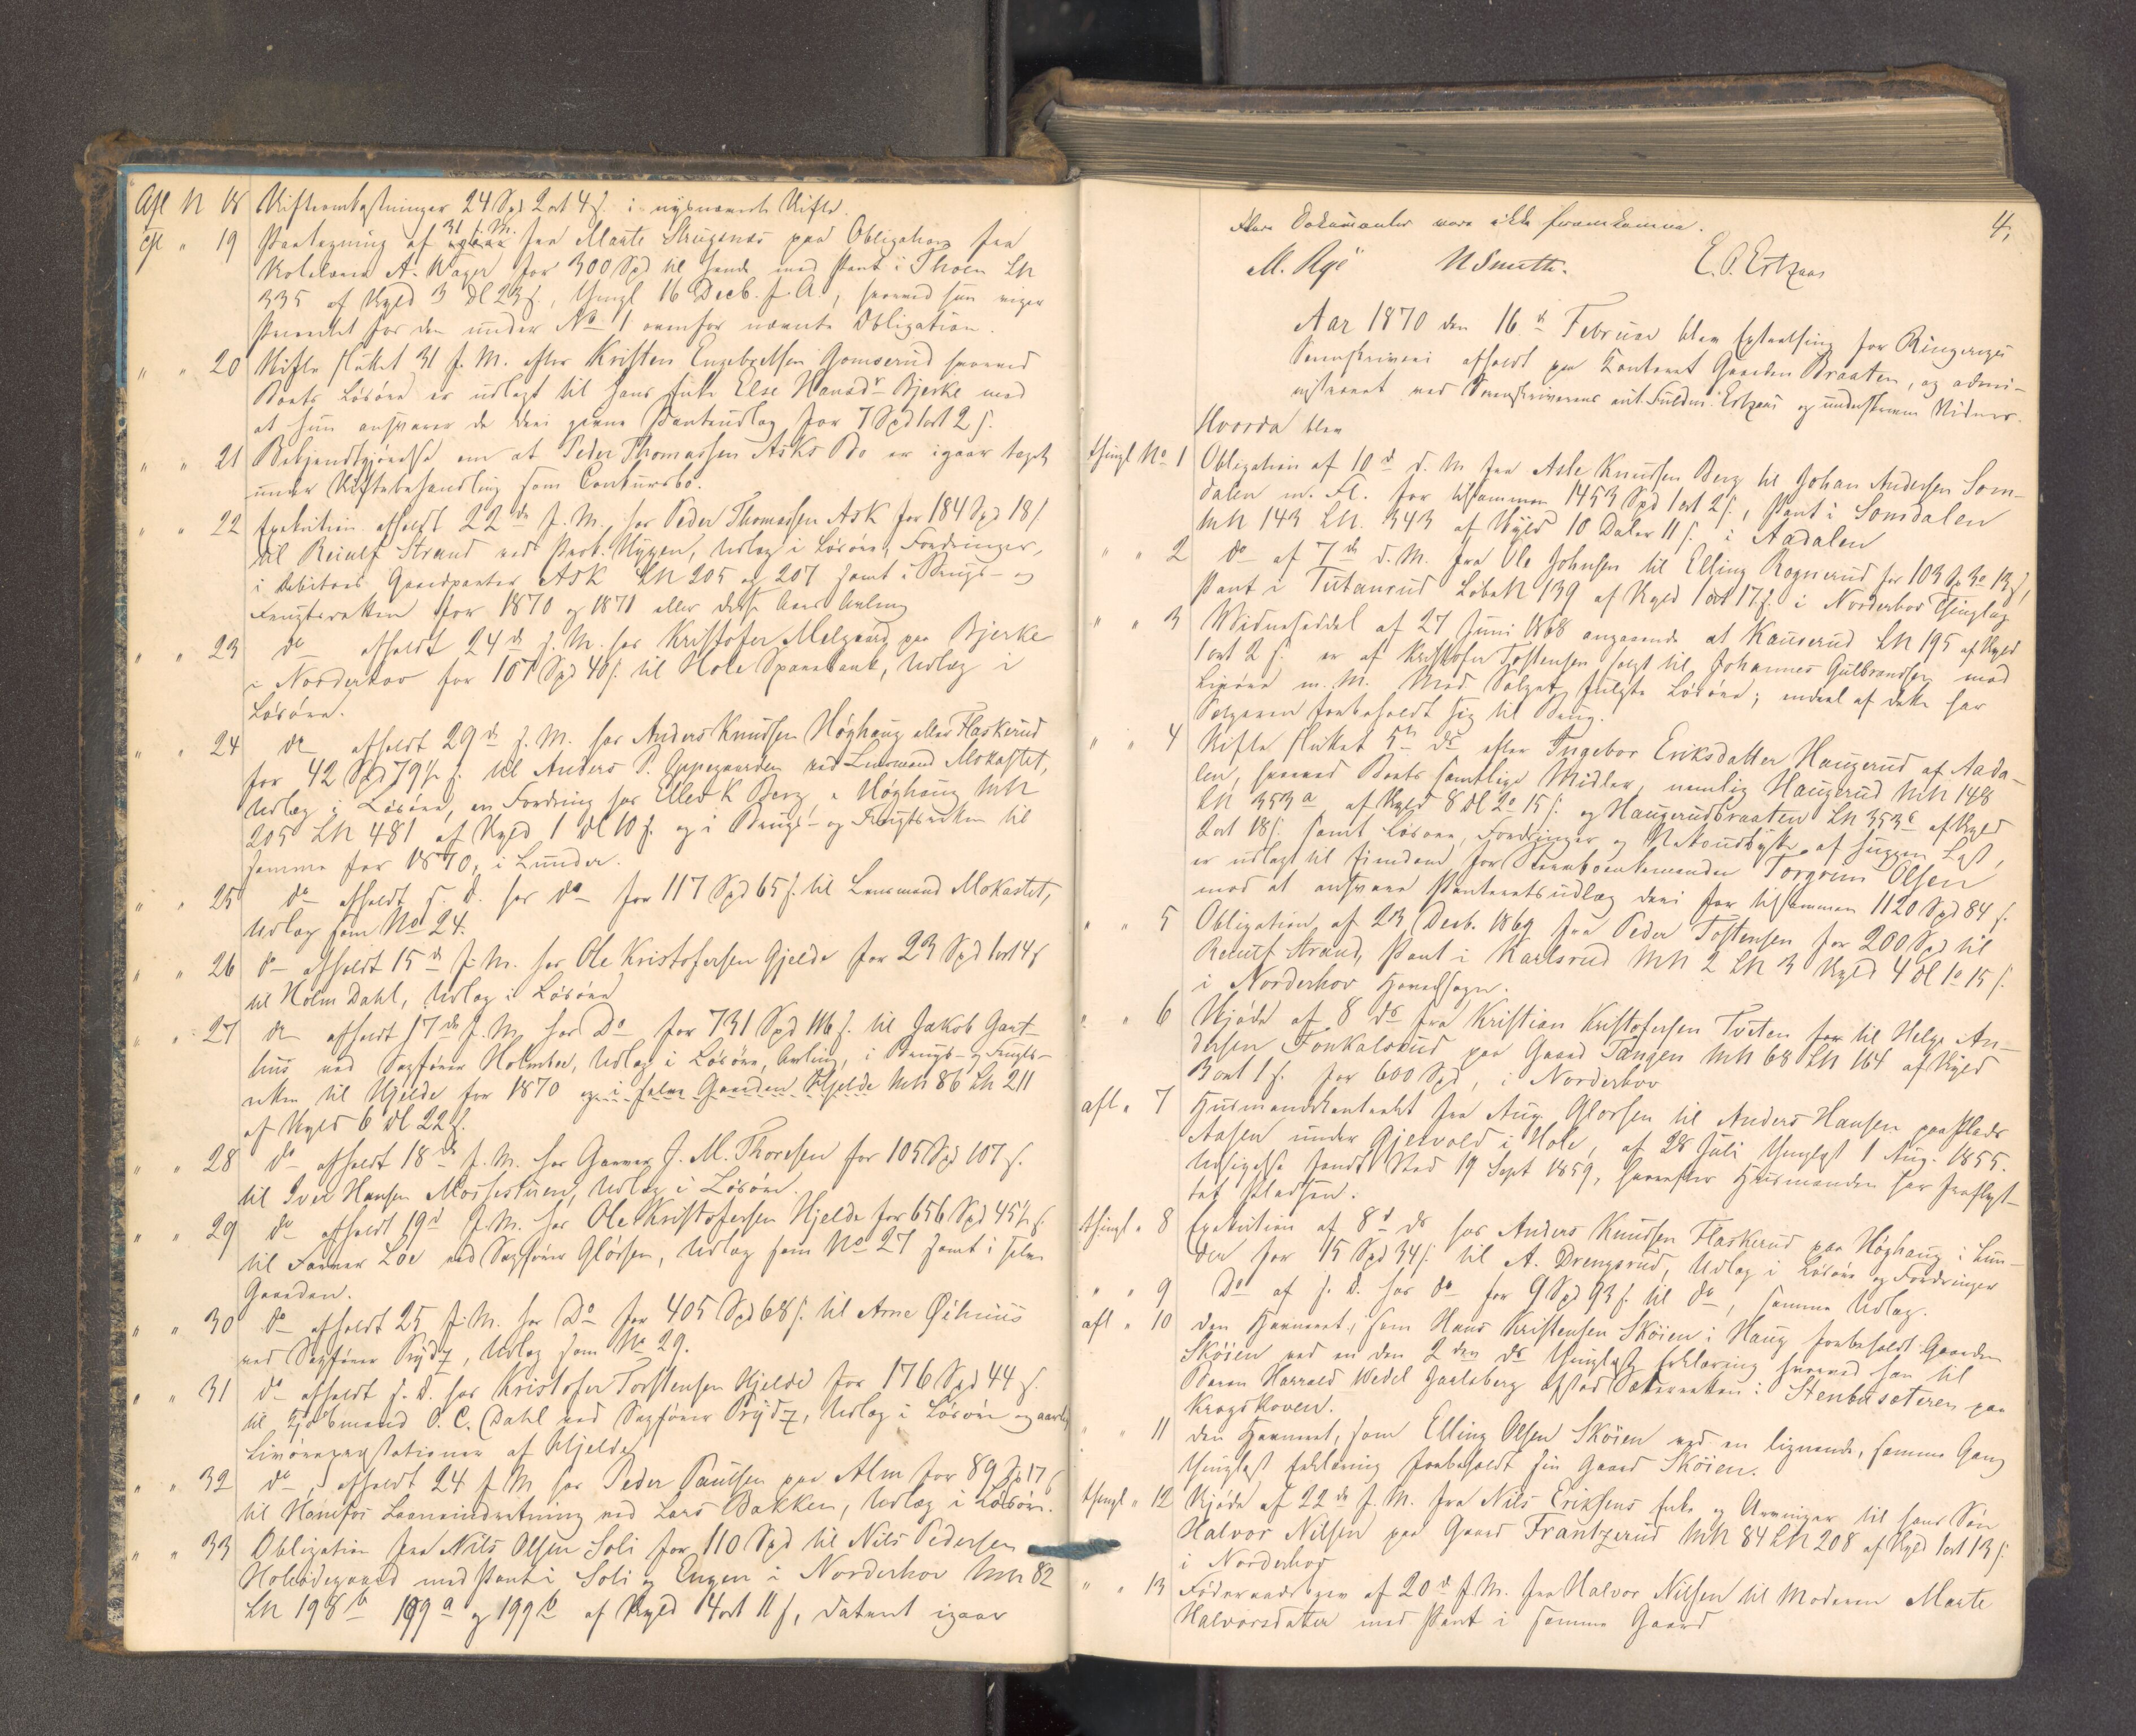 Afl N 18 Skifteomkostninger 24 Spd 2 ort 4 s. i nysnævnte Skifte.
" 19 Paategning af 31 f. M. fra Marte Strugenæs paa Obligation fra
A. Wager for 300 Spd til hende med Pant i Thoen LN
335 af Skyld 3 Dl 23 s., thingl 16 Decb. f. A., hvorved hun viger
Prioritet for den under No 1 ovenfor nævnte Obligation.
" " 20 Skifte sluttet 31 f. M. efter Kristen Engebretsen Gomserud hvorved
Boets Løsøre er udlagt til hans Enke Else Hansdr Bjerke mod
at hun ansvarer de deri givne Pantudlæg for 7 Spd 1 ort 2 s.
" " 21 Bekjendtgjørelse om at Peder Thomassen Asks Bo er igaar taget
under Skiftebehandling som Concursbo.
" " 22 Exekution afholdt 22de f. M. hos Peder Thomassen Ask for 184 Spd 18 s
til Reinulf Strand ved Prok. Hygen, Udlæg i Løsøre, Fordringer,
i Debitors Gaardparter Ask LN 205 og 207 samt i Brugs- og
Frugtsretten for 1870 og 1871 eller disse Aars Avling
" " 23 do afholdt 24de f. M. hos Kristofer Melgaard paa Bjerke
i Norderhov for 107 Spd 40 s. til Hole Sparebank, Udlæg i
Løsøre.
" " 24 do afholdt 29de f. M. hos Anders Knudsen Høghaug eller Flaskerud
for 42 Spd 79½ s. til Anders P. Oppegaarden ved Lensmand Mokastet,
Udlæg i Løsøre, en Fordring hos Ellev K Berg, Høghaug MN
205 LN 481 af Skyld 1 Dl 10 s. og i Brugs- og Frugtsretten til
samme for 1870, i Lunder.
" " 25 do afholdt s. D. hos do for 117 Spd 65 s. til Lensmand Mokastet,
Udlæg som No 24.
" " 26 do afholdt 15de f. M. hos Ole Kristofersen Gjelde for 23 Spd 1 ort 4 s
til Holm Dahl, Udlæg i Løsøre
" " 27 do afholdt 17de f. M. hos Do for 731 Spd 116 s. til Jakob Gart-
hus ved Sagfører Holmboe, Udlæg i Løsøre, Avling, i Brugs- og Frugts-
retten til Hjelde for 1870 og i selve Gaarden Hjelde MN 86 LN 211
af Skyld 6 Dl 22 s.
" " 28 do afholdt 18de f. M. hos Garver J. M. Thoresen for 105 Spd 107 s.
til Iver Hansen Mosesteuen, Udlæg i Løsøre.
" " 29 do afholdt 19de f. M. hos Ole Kristofersen Hjelde for 656 Spd 45½ s.
til Farver Loe ved Sagfører Glørsen, Udlæg som No 27 samt i selve
Gaarden.
" " 30 do afholdt 25 f. M. hos Do for 405 Spd 68 s. til Arne Øihuus
ved Sagfører Prydz, Udlæg som No 29.
" " 31 do afholdt s. D. hos Kristofer Torstensen Hjelde for 176 Spd 44 s
til Kjøbmand O. C. Dahl ved Sagfører Prydz, Udlæg i Løsøre og aarlige
Livørepræstationer af Hjelde
" " 32 do afholdt 24 f. M. hos Peder Paulsen paa Alm for 89 Sp 17 s
til Hønefos Laaneindretning ved Lars Bakken, Udlæg i Løsøre.
" " 33 Obligation fra Nils Olsen Soli for 110 Spd til Nils Pedersen
Holeødegaard med Pant i Soli og Engen i Norderhov MN 82
LN 198b 199a og 199b af Skyld 4 ort 11 s, dateret igaar
4,
Flere Dokumenter vare ikke fremkomne.
M. Rye N Smith. E. O. Erhzaas
Aar 1870 den 16de Februar blev Extrathing for Ringeriges
Sorenskriveri afholdt paa Kontoret Gaarden Braaten, og admi-
nistreret ved Sorenskriverens aut. Fuldm. og underskrevne Vidner.
Hvorda blev
thingl No 1 Obligation af 10de d. M fra Asle Knudsen Berg til Johan Andersen Som-
dalen m. Fl. for tilsammen 1453 Spd 1 ort 2 s., Pant i Somdalen
MN 143 LN. 343 af Skyld 10 Daler 11 s. i Aadalen
" " 2 do af 7de d. M. fra Ole Johnsen til Elling Rognerud for 103 Sp 3o 13 s,
Pant i Tutanrud LøbeN 139 af Skyld 1 ort 17 s. i Norderhov Thinglag
" " 3 Midneseddel af 27 Juni 1868 angaaende at Kauserud LN 195 af Skyld
1 ort 2 s. er af Kristofer Tostensen solgt til Johannes Gulbrandsen mod
Livøre m. M. Med Salget fulgte Løsøre; endeel af dette har
Selgeren forbeholdt sig til Brug.
" " 4 Skifte sluttet 5te ds efter Ingebor Eriksdatter Haugerud af Aada-
len, hvorved Boets samtlige Midler, nemlig Haugerud MN 148
LN 353a af Skyld 8 Dl 2o 15 s. og Haugerudbraaten LN 353c af Skyld
2 ort 18 s. samt Løsøre, Fordringer og af huggen Last,
er udlagt til Eiendom for Torgrim Olsen
mod at ansvare Panteretsudlæg deri for tilsammen 1120 Spd 84 s.
" " 5 Obligation af 23 Decb. 1869 fra Peder Tostensen for 200 Spd til
Reinulf Strand, Pant i Karlsrud MN 2 LN 3 Skyld 4 Dl 1o 15 s.
i Norderhov Hovedsogn.
" " 6 Skjøde af 8 ds fra Kristian Kristofersen Tveten for til Helge An-
dersen Fonkalsrud paa Gaard Tangen MN 68 LN 164 af Skyld
3 ort 1 s. for 600 Spd, i Norderhov
afl " 7 Husmandskontrakt fra Aug. Glørsen til Anders Hansen paa Plads
Aasen under Gjesvold i Hole, af 28 Juli thinglyst 1 Aug. 1855.
Udsigelse fandt Sted 19 Sept 1859, hvorefter Husmanden har fraflyt-
tet Pladsen.
thingl " 8 Exekution af 8de ds hos Anders Knudsen Flaskerud paa Høghaug i Lun-
der for 15 Spd 34 s. til A. Drengsrud, Udlæg i Løsøre og Fordringer
" " 9 Do af s. D. hos do for 9 Spd 93 s. til do, samme Udlæg.
afl " 10 den Havneret, som Hans Kristensen Skøien i Haug forbeholdt Gaarden
Skøien ved en den 2den ds thinglyst Erklæring hvorved han til
Baron Harrald Wedel Jarlsberg afstod Sæterretten i Stenbusæteren paa
Krogskoven.
" " 11 den Havneret, som Elling Olsen Skøien ved en lignende, samme Gang
thinglyst Erklæring forbeholdt sin Gaard Skøien.
thingl " 12 Skjøde af 22de f. M. fra Nils Eriksens Enke og Arvinger til hans Søn
Halvor Nilsen paa Gaard Frantzerud MN 84 LN 208 af Skyld 1 ort 13 s.
i Norderhov
" " 13 Føderaadsbrev af 20de f. M. fra Halvor Nilsen til Moderen Marte
Halvorsdatter med Pant i samme Gaard